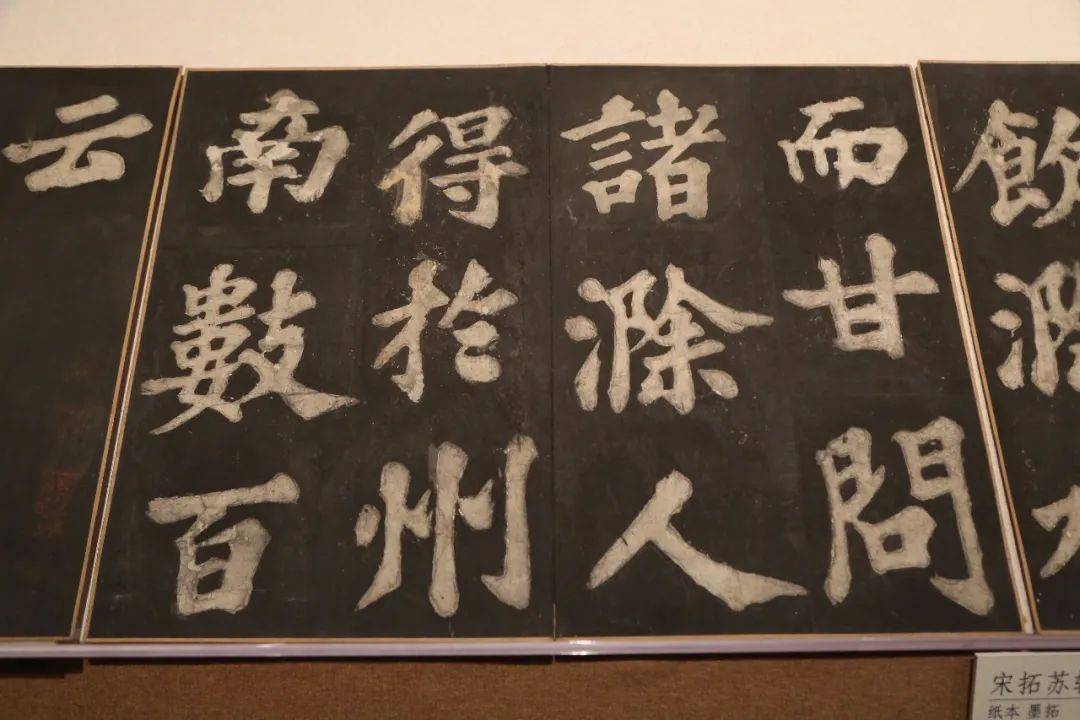 飲滁
而甘問
諸滁人
得於州
南數百
云
宋拓苏
纸本 墨拓